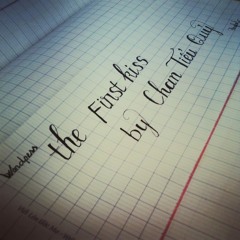 the First kiss
by Chan Tiểu Quỷ